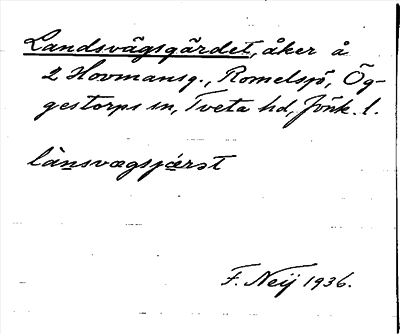 Landsvägsgärdet, åker å
2 Hovmansg., Romelsjö, Ög-
gestorps sn, Tveta hd, Jönk. l.
lànsvægsjæ̀rst
F. Neij 1936.